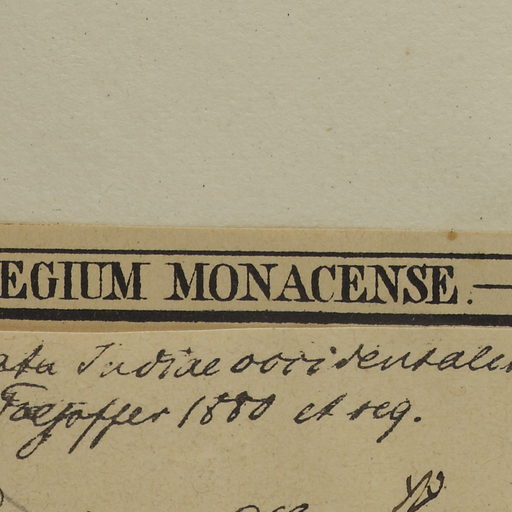 EGIUM MONACENSE.
ata Indiae occidentalis
Toepffer 1880 et seq.